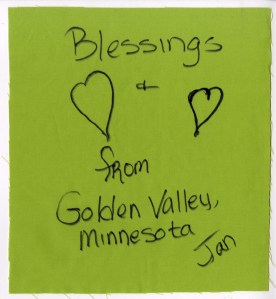 Blessings
+
from
Golden Valley,
Minnesota
Jan